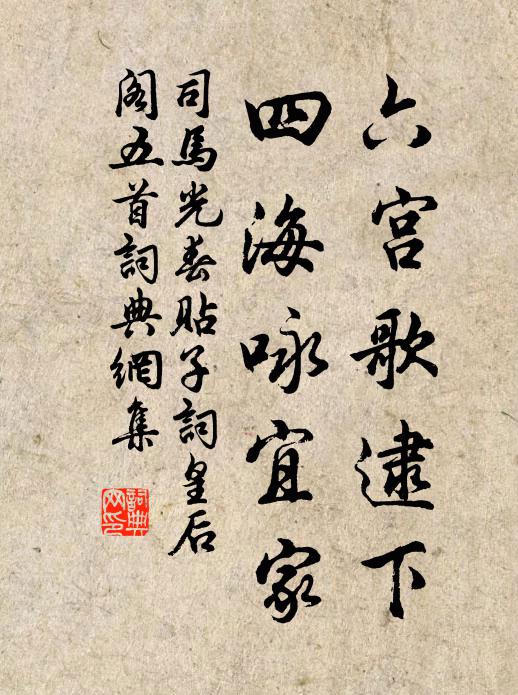 六宮歌逮下
四海咏宜家
司馬光春貼子詞皇后
阁五首詞典網集
詞典
网印